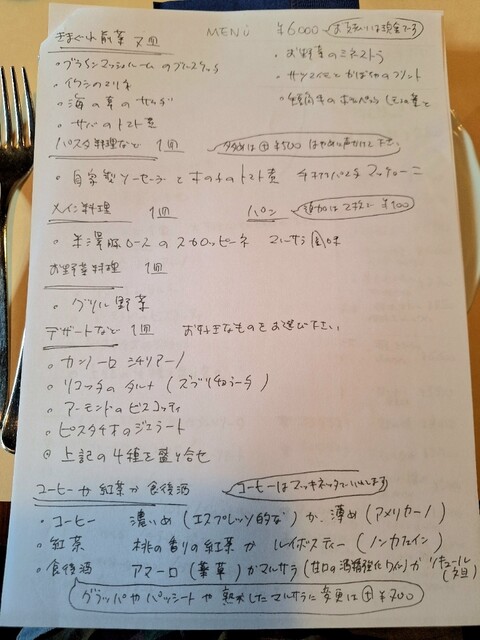 きまぐれ前菜 7皿 MENU ¥6000 お支払いは現金です
・ブラウンマッシュルームのブルスケッタ ・お野菜のミネストラ
・イワシのマリネ ・サツマイモとかぼちゃのフリット
・海の幸のサラダ
・サバのトマト煮
パスタ料理など 1皿 多めは⊕¥500 はやめに声かけて下さい
・自家製ソーセージときのこのトマト煮
メイン料理 1皿 パン 追加は2枚に¥100
・米澤豚ロースのスカロッピーネ マルサラ風味
お野菜料理 1皿
・グリル野菜
デザートなど 1皿 お好きなものをお選び下さい
・カンノーロ シチリアーノ
・リコッタのタルト (ズブリチョラータ)
・アーモンドのビスコッティ
・ピスタチオのジェラート
◎上記の4種を盛り合せ
コーヒーか紅茶か食後酒 コーヒーはマッキネッタでいれます
・コーヒー 濃いめ (エスプレッソ的な) か 薄め (アメリカーノ)
・紅茶 桃の香りの紅茶か ルイボスティー (ノンカフェイン)
・食後酒 アマーロ (薬草) かマルサラ (甘口の酒精強化ワイン) か リキュール
グラッパやパッシートや熟成したマルサラに変更は⊕¥700